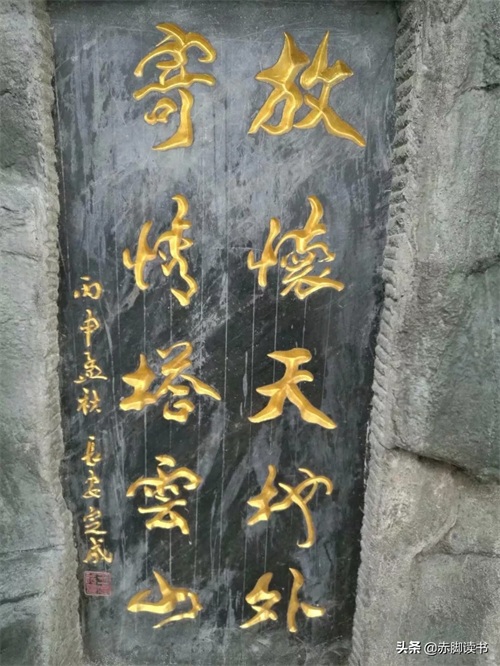 放懷天地外
寄情塔雲山
丙申孟秋 長安定成
头条 @赤脚读书